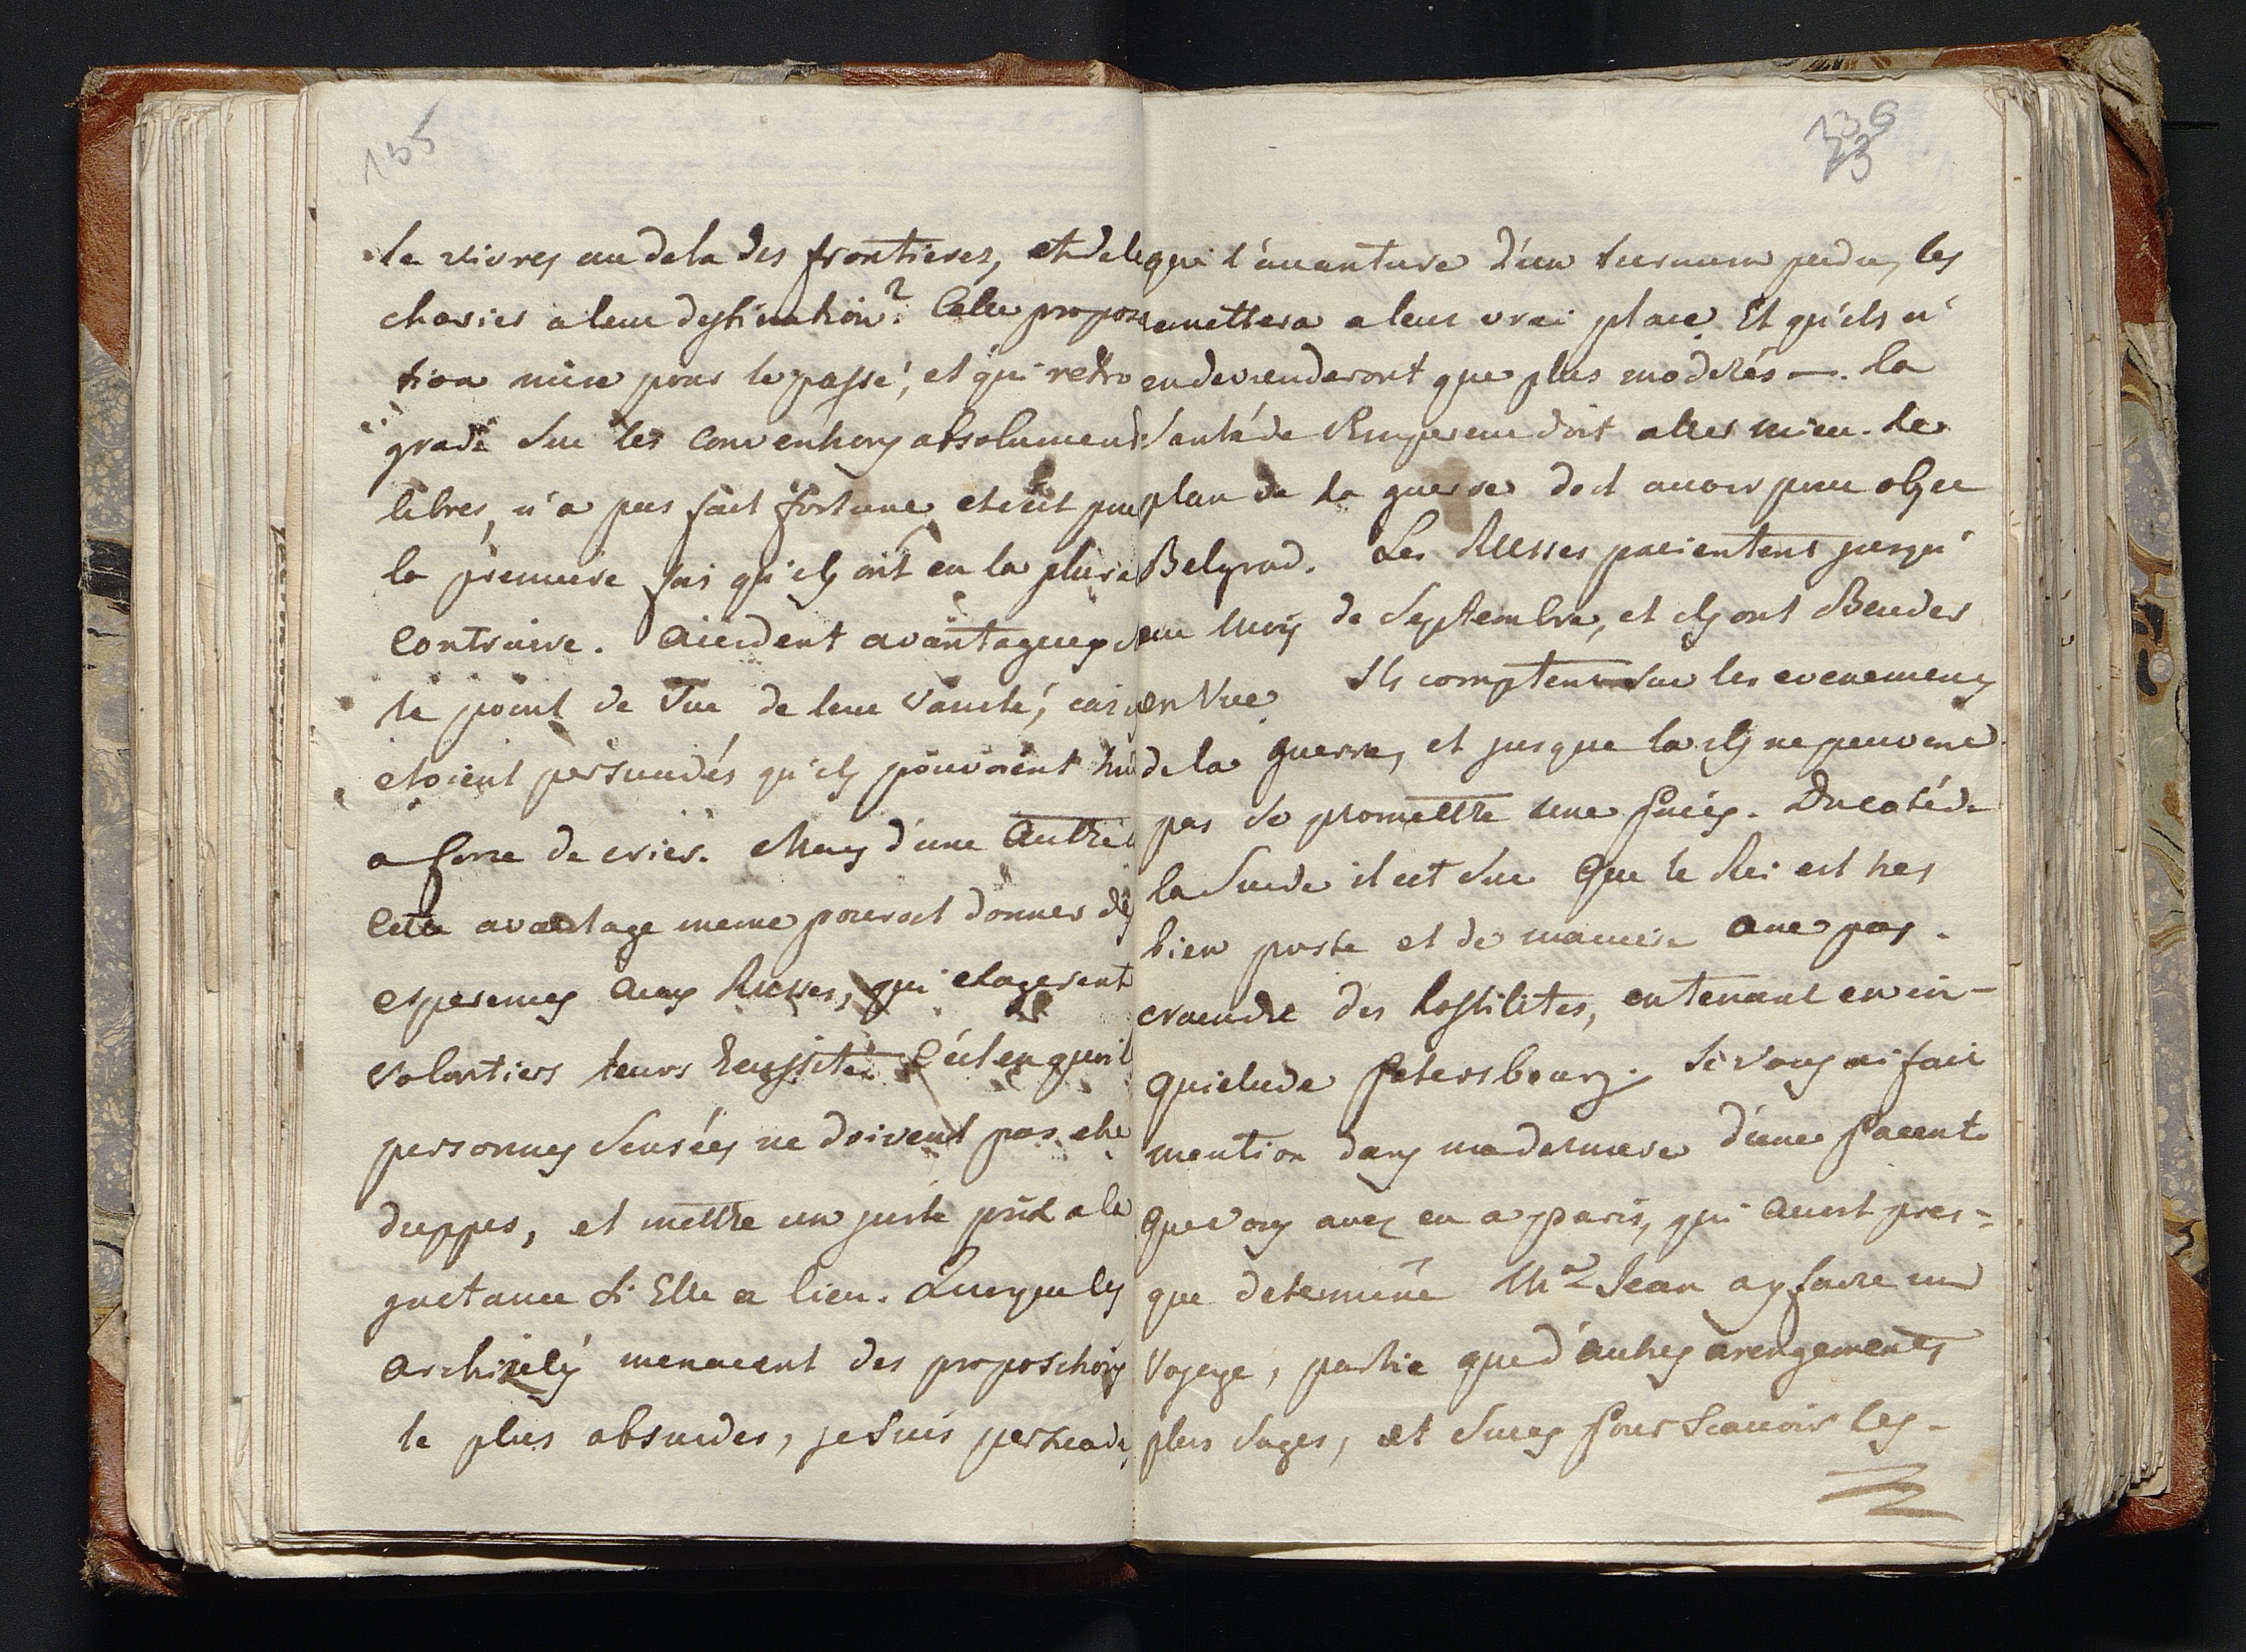 135
le vivres au dela des frontieres, et de le
charier a leur destination? Cette propos
tion mise pour le passé, et qui retro
grade sur les conventions absolument
libres, n'a pas fait fortune, et c'est pour
la premiere fois qu'ils ont eu la plura
contraire. Accident avantageux
le point de vue de leur vanité, car
etoient persuadés qu'ils pouvoient
a force de crier. Mais d'une autre
cette avantage meme pouroit donner des
esperences aux Russes, qui
volontiers leurs C'est en quoi
personnes sensées ne doivent pas etre
duppes, et mettre un juste prix a la
si Elle a lieu. les
menacent des propositions
le plus absurdes, je suis persuadé
136
73
que l'avanture d'un perdu, les
remettera a leur vrai place. Et qu'ils n'
en deviendront que plus modérés —. la
santé de l'Empereur doit aller mieu. Le
plan de la guerre doit avoir pour objet
Belgrad. Les Russes pacientent jusqu'
au mois de Septembre, et ils ont Bender
en vue. Ils comptent sur les evenemens
de la guerre, et jusque la ils ne peuvent
pas se promettre une Du coté de
la Suede il est sur que le Roi est tres
bien posté et de maniere a ne pas
craindre des hostilites, en tenant en in-
quietude Petersbourg. Je vous ai fait
mention dans ma derniere d'une
que vous avez eu a Paris, qui avoit pres-
que determiné Jean a y faire un
voyage, partie que d'autres arengements
plus sages, et pour scavoir les-